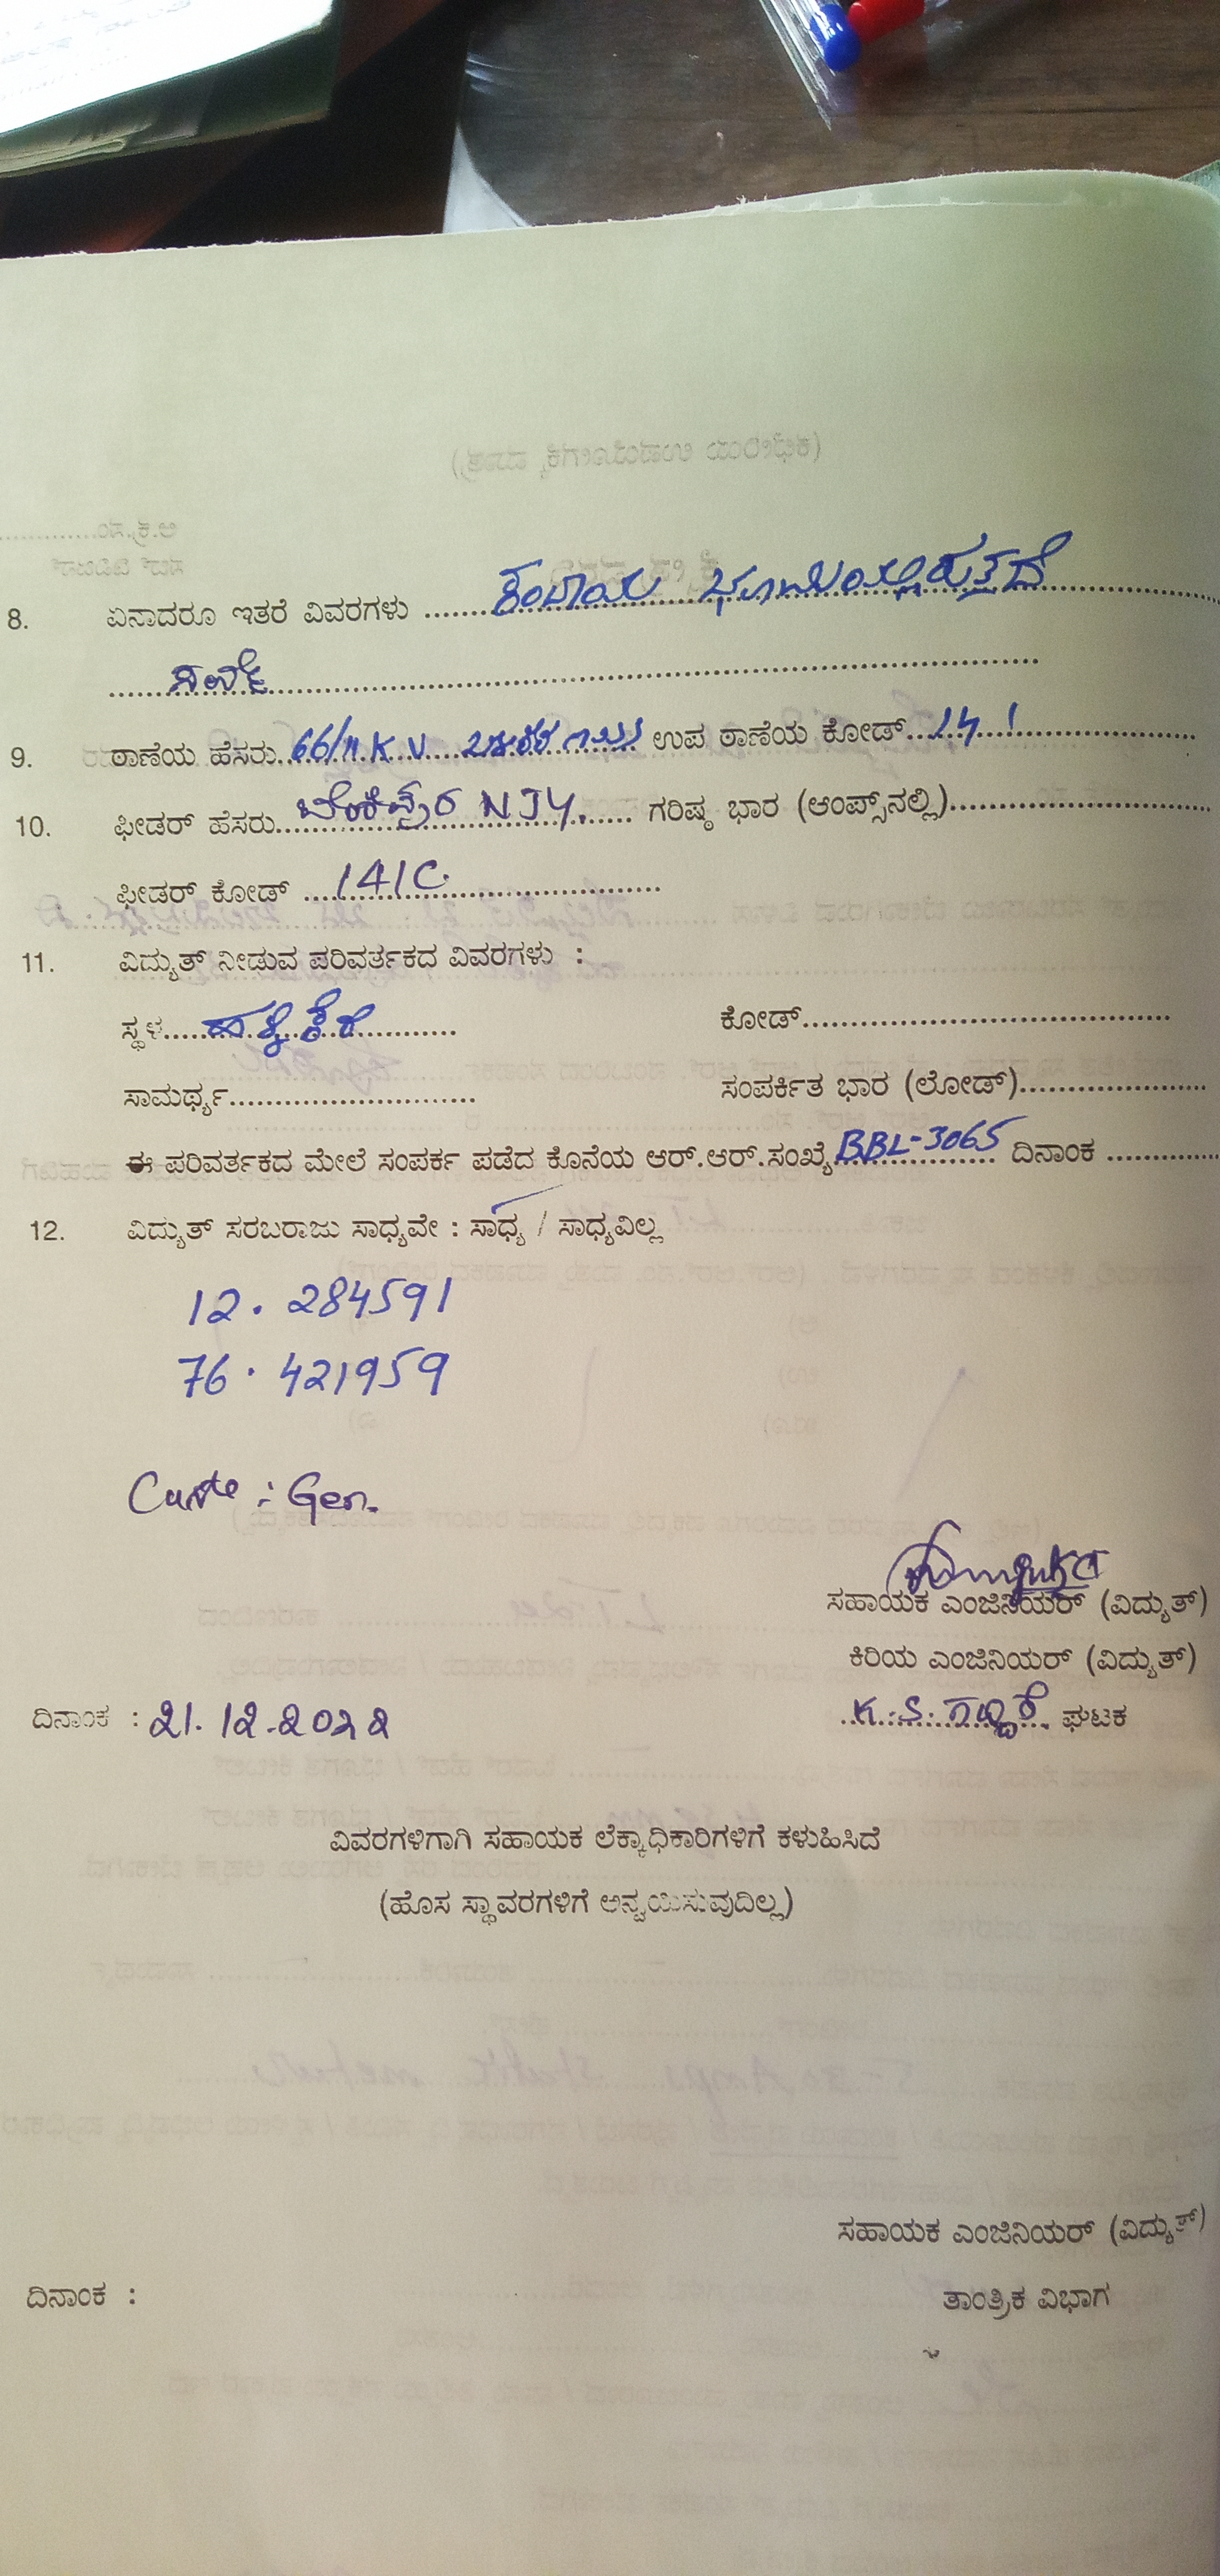 8. ಏನಾದರೂ ಇತರೆ ವಿವರಗಳು ........ ಕಂದಾಯ ಭೂಮಿಯಲ್ಲಿರುತ್ತದೆ
9. ಠಾಣೆಯ ಹೆಸರು.. 66/11 K.V ಉಪ ಠಾಣೆಯ ಕೋಡ್... 141
10. ಫೀಡರ್ ಹೆಸರು... NJY. ಗರಿಷ್ಠ ಭಾರ (ಆಂಪ್ಸ್‌ನಲ್ಲಿ)........
ಫೀಡರ್ ಕೋಡ್ .... 141C.
11. ವಿದ್ಯುತ್ ನೀಡುವ ಪರಿವರ್ತಕದ ವಿವರಗಳು :
ಸ್ಥಳ..... ಕೋಡ್........
ಸಾಮರ್ಥ್ಯ........ ಸಂಪರ್ಕಿತ ಭಾರ (ಲೋಡ್)........
ಈ ಪರಿವರ್ತಕದ ಮೇಲೆ ಸಂಪರ್ಕ ಪಡೆದ ಕೊನೆಯ ಆರ್.ಆರ್.ಸಂಖ್ಯೆ BBL-3065 ದಿನಾಂಕ ........
12. ವಿದ್ಯುತ್ ಸರಬರಾಜು ಸಾಧ್ಯವೇ : ಸಾಧ್ಯ / ಸಾಧ್ಯವಿಲ್ಲ
12.284591
76.421959
Caste : Gen.
ಸಹಾಯಕ ಎಂಜಿನಿಯರ್ (ವಿದ್ಯುತ್)
ಕಿರಿಯ ಎಂಜಿನಿಯರ್ (ವಿದ್ಯುತ್)
ದಿನಾಂಕ : 21.12.2022 K.S. ಘಟಕ
ವಿವರಗಳಿಗಾಗಿ ಸಹಾಯಕ ಲೆಕ್ಕಾಧಿಕಾರಿಗಳಿಗೆ ಕಳುಹಿಸಿದೆ
(ಹೊಸ ಸ್ಥಾವರಗಳಿಗೆ ಅನ್ವಯಿಸುವುದಿಲ್ಲ)
ಸಹಾಯಕ ಎಂಜಿನಿಯರ್ (ವಿದ್ಯುತ್)
ದಿನಾಂಕ : ತಾಂತ್ರಿಕ ವಿಭಾಗ